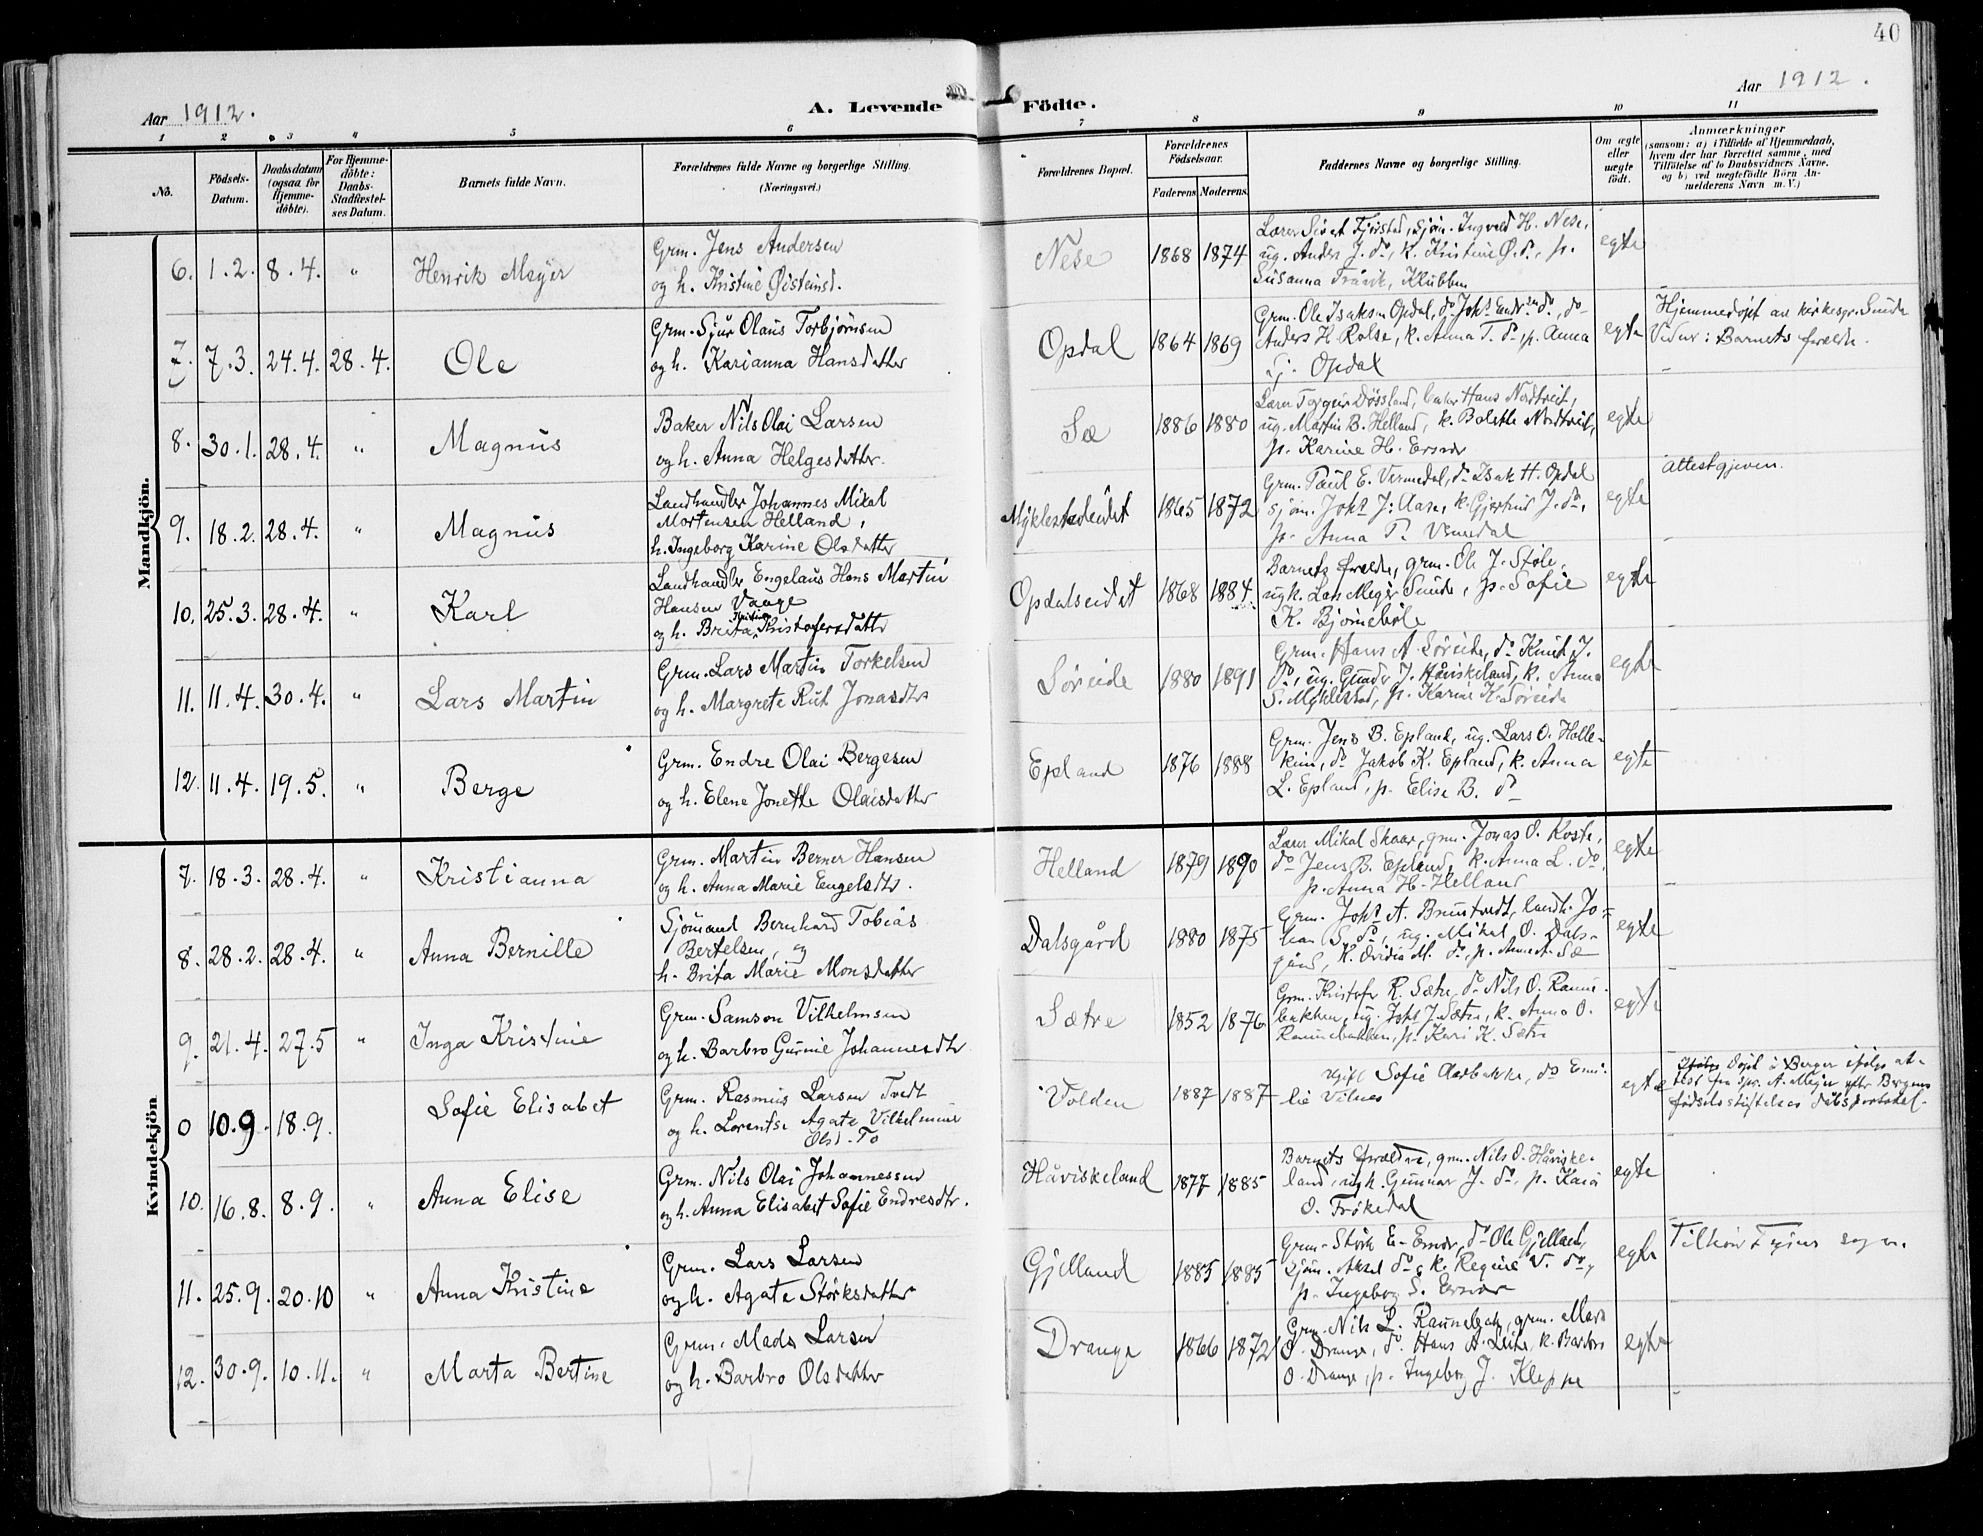 40
Aar 1912.
A. Levende Födte.
Aar 1912.
1 2 3 4 5 6 7 8 9 10 11
No.
Födsels-Datum.
Daabsdatum (ogsaa for Hjemme-döbte).
For Hjemme-döbte: Daabs-Stadfæstel-ses Datum.
Barnets fulde Navn.
Forældrenes fulde Navne og borgerlige Stilling. (Næringsvei.)
Forældrenes Bopæl.
Forældrenes Födselsaar.
Faderens Moderens
Faddernes Navne og borgerlige Stilling.
Om ægte eller uægte födt.
Anmærkninger
(saasom: a) i Tilfælde af Hjemmedaab,
hvem der har forrettet samme, med
Tilföielse af to Daabsvidners Navne,
og b) ved uægtefödte Börn An-
melderens Navn m. V.)
Mandkjön.
6. 1.2. 8.4. " Henrik Meyer
Grm. Jens Andersen
og h. Kristine Øisteinsd.
Nese 1868 1874
Lærer Sivert Fjørstad, sjøm. Ingvald H. Nese,
ug. Anders J. do, k. Kristine Ø. do, p.
Susanna Klubben
egte
7. 7.3. 24.4. 28.4. Ole
Grm. Sjur Olaus Torbjørnsen
og h. Karianna Hansdatter
Opdal 1864 1869
Grm. Ole Isaksen Opdal, do Johs Endrsen do, do
Anders H. Rolse, k. Anna T. do, p. Anna
Opdal
egte
Hjemmedøpt av kirkesgr. Sunde
Vidner: Barnets forældre.
8. 30.1. 28.4. " Magnus
Baker Nils Olai Larsen
og h. Anna Helgesdatter.
Sæ 1886 1880
Lærer Torgeir Døssland, baker Hans Nordtveit,
ug. Martin B. Helland, k. Bolette Nordtveit,
p. Karine H. Ersvær
egte
9. 18.2. 28.4. " Magnus
Landhandler Johannes Mikal
Mortensen Helland,
h. Ingeborg Karine Olsdatter
Myklestadeidet 1865 1872
Grm. Paul E. Vermedal, do Isak H. Opdal
sjøm. Johs J. Aase, k. Gjertrud J. do,
p. Anna P. Vemedal
egte
Attest gjeven.
10. 25.3. 28.4. " Karl
Landhandler Engelaus Hans Martin
Hansen Vaage
og h. Brita Kristine Kristofersdatter
Opdalseidet 1868 1884.
Barnets forældre, grm. Ole J. Støle,
ugk. Lars Meyer Sunde, p. Sofie
K. Bjørnebøle
egte
11. 11.4. 30.4. " Lars Martin
Grm. Lars Martin Torkelsen
og h. Margrete Rut Jonasdtr
Søreide 1880 1891
Grm. Hans A. Søreide, do Knut J.
do, ug. Gunder J. Håviskeland, k. Anna
S. Myklestad, p. Karine K. Søreide
egte
12. 11.4. 19.5. " Berge
Grm. Endre Olai Bergesen
og h. Elene Jonette Olaisdatter
Epland 1876 1888
Grm. Jens B. Epland, ug. Lars O. Holle-
kim, do Jakob K. Epland, k. Anna
L. Epland, p. Elise B. do
egte
Kvindekjön
7. 18.3. 28.4. " Kristianna
Grm. Martin Berner Hansen
og h. Anna Marie Engelsdtr.
Helland 1879 1890
Lærer Mikal Skaar, grm. Jonas O. Koste,
do Jens B. Epland, k. Anna L. do,
p. Anna H. Helland
egte
8. 28.2. 28.4. " Anna Bernille
Sjømand Bernhard Tobias
Bertelsen, og
h. Brita Marie Monsdatter
Dalsgård 1880 1875
Grm. Johs A. Bruntveit, landh. Jo-
han S. do, ug. Mikal O. Dals-
gård, k. Ovidia M. do, p. Anna A. Sæ
egte
9. 21.4. 27.5 " Inga Kristine
Grm. Samson Vilhelmsen
og h. Barbro Gurine Johannesdtr
Sætre 1852 1876
Grm. Kristofer R. Sætre, do Nils O. Raune-
bakken, ug. Johs J. Sætre, k. Anna O.
Raunebakken, p. Kari K. Sætre
egte
0 10.9. 18.9. Sofie Elisabet
Grm. Rasmus Larsen Tvedt
og h. Lorentse Agate Vilhelmine
Olsd. To
Volden 1887 1887
ugift Sofie Aarbakke, do Emi-
lie Vilnes
egte
Døpt i Bergen ifølge at-
test fra spr. A. Meyer efter Bergens
fødselsstiftelses dåbsprotokol.
10. 16.8. 8.9. " Anna Elise
Grm. Nils Olai Johannessen
og h. Anna Elisabet Sofie Endresdtr.
Håviskeland 1877 1885
Barnets forældre, grm. Nils O. Håviske-
land, ugk. Gunnar J. do, p. Kari
O. Frøkedal
egte
11. 25.9. 20.10 " Anna Kristine
Grm. Lars Larsen
og h. Agate Størksdatter
Gjelland 1885 1885
Grm. Størk E. Ersvær, do Ole Gjelland,
sjøm. Aksel do, k. Regine V. do,
p. Ingeborg S. Ersvær
egte
Tilhør Fjons sogn.
12. 30.9. 10.11. " Marta Bertine
Grm. Mads Larsen
og h. Barbro Olsdatter
Drange 1866 1872
Grm. Nils L. Raunebak, grm. Mars
O. Drange, do Hans A. Leite, k. Barbro
O. Drange, p. Ingeborg J. Kleppe
egte